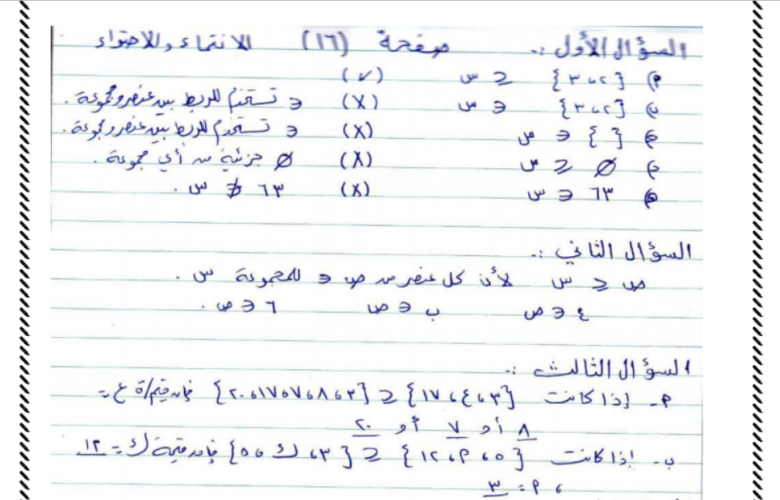 السؤال الأول :. صفحة (١٦) الانتماء والاحتواء
٢) {٢، ٣} ⊆ س (✓)
ب) {٢، ٣} ∋ س (X) ∋ تستخدم للربط بين عنصر ومجموعة .
ج) { } ∋ ص (X) ∋ تستخدم للربط بين عنصر ومجموعة .
د) ∅ ⊆ ص (X) ∅ جزئية من أي مجموعة .
٦٣ ∋ س (X) ٦٣ ∌ س .
السؤال الثاني :.
ص ⊆ س لأن كل عنصر من ص ∋ للمجموعة س .
٤ ∋ ص ب ∋ ص ٦ ∋ ص .
السؤال الثالث :.
٢- إذا كانت {٣، ٤، ١٧} ⊆ {٣، ٨، ٧، ١٧، ٢٠} فإن قيم/ة ع =
٨ أو ٧ أو ٢٠
ب- إذا كانت {٥، ٢، ١٢} ⊆ {٣، ك، ٥} فإن قيمة ك = ١٢
، ٢ = ٣